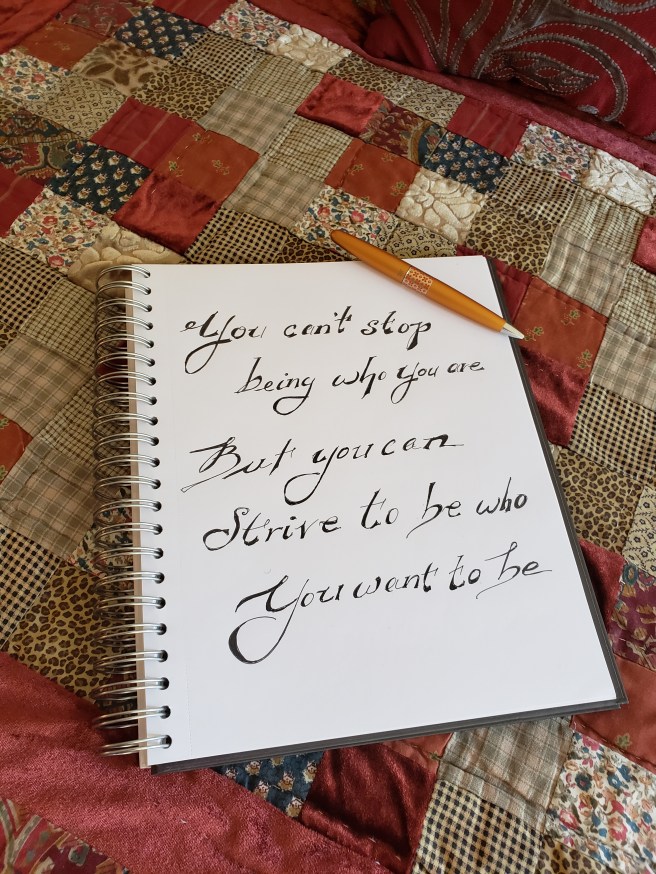 You can't stop
being who you are
But you can
Strive to be who
You want to be